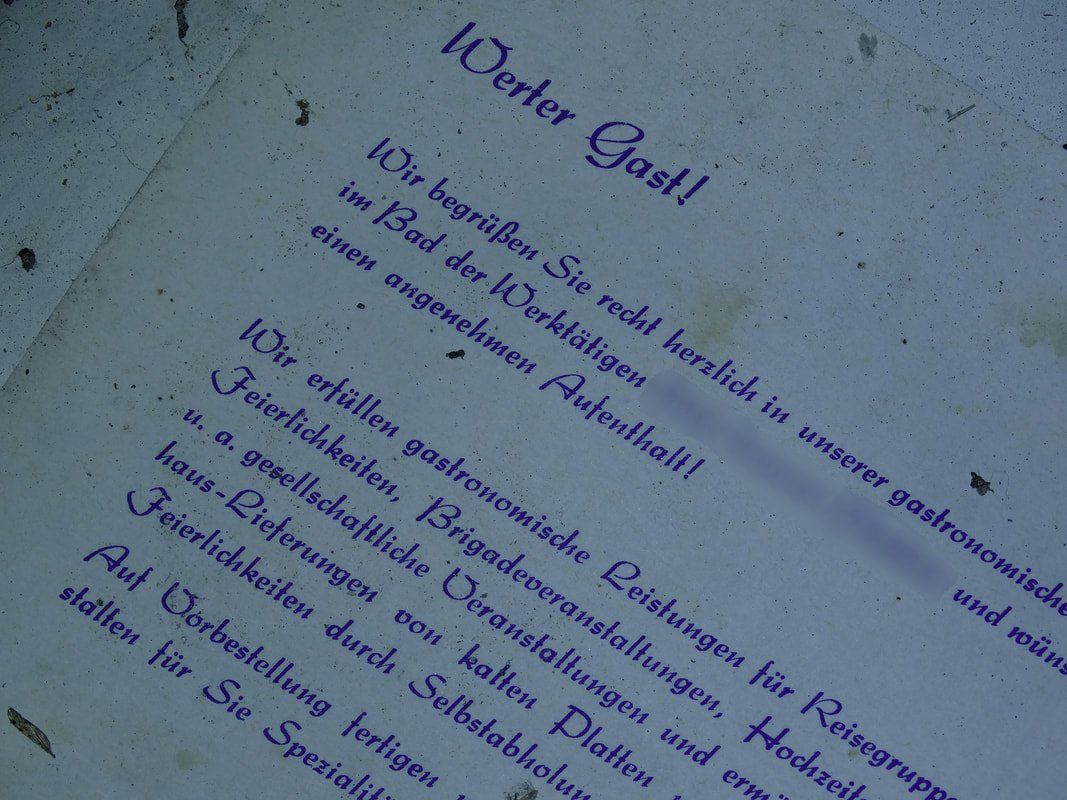 Werter Gast!
Wir begrüßen Sie recht herzlich in unserer gastronomische
im Bad der Werktätigen und wüns
einen angenehmen Aufenthalt!
Wir erfüllen gastronomische Leistungen für Reisegruppe
Feierlichkeiten, Brigadeveranstaltungen, Hochzeite
u. a. gesellschaftliche Veranstaltungen und ermö
haus-Lieferungen von kalten Platten
Feierlichkeiten durch Selbstabholun
Auf Vorbestellung fertigen
stalten für Sie Spezialitä